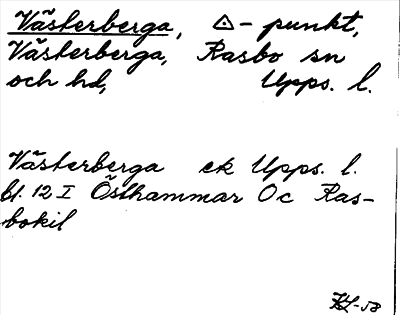 Västerberga, △ - punkt,
Västerberga, Rasbo sn
och hd, Upps. l.
Västerberga ek Upps. l.
bl. 12 I Östhammar Oc Ras-
bokil